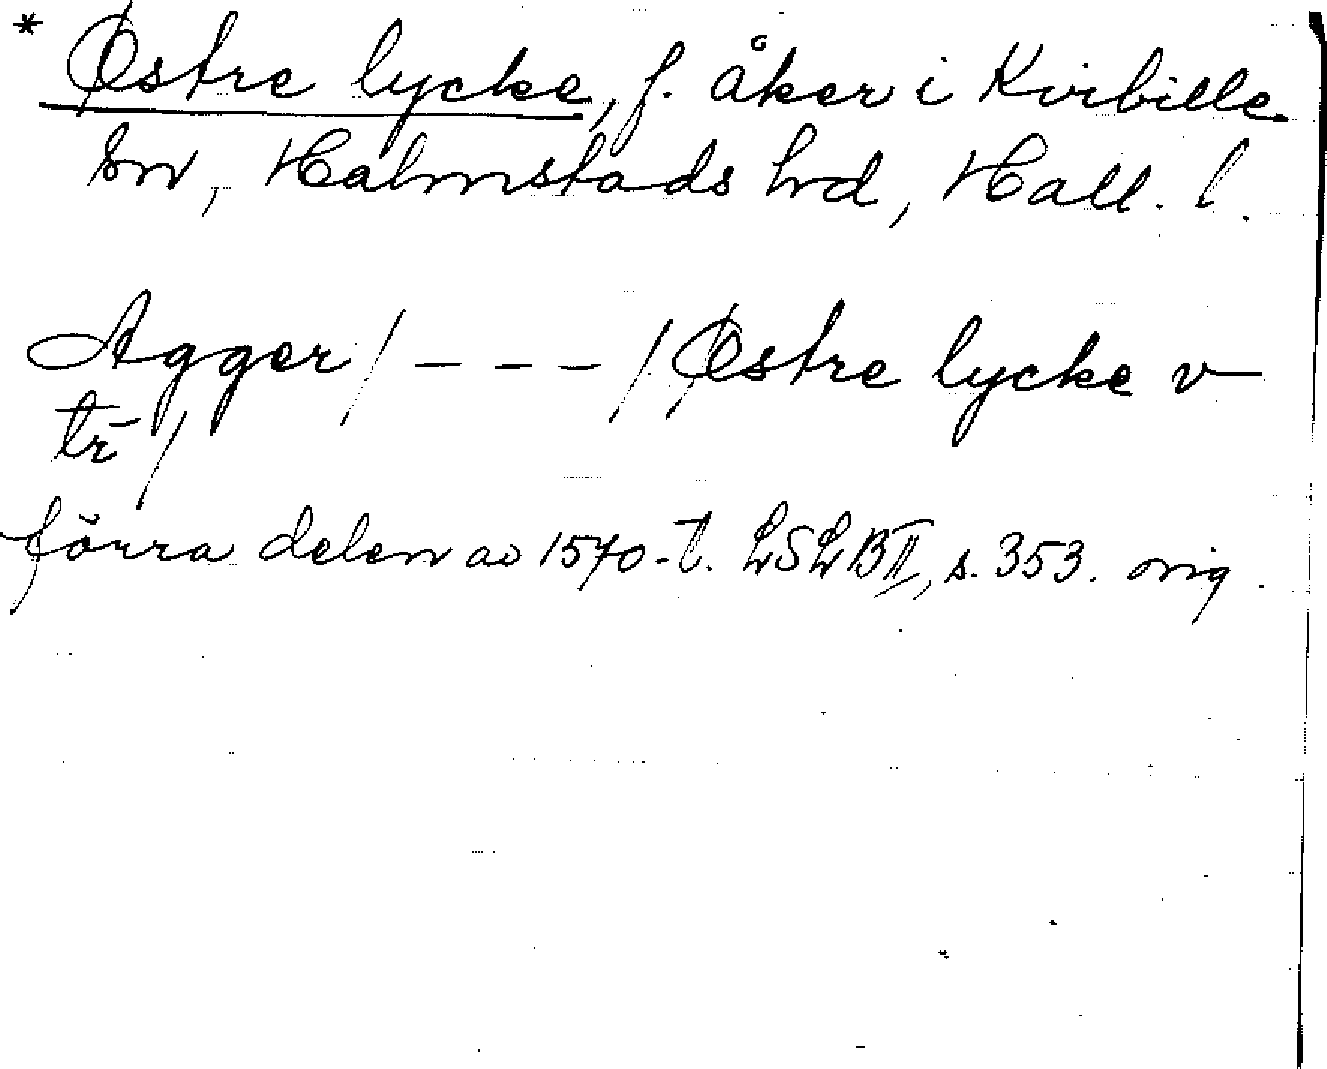 * Østre lycke, f. åker i Kvibille
sn, Halmstads hrd, Hall. l.
Agger / - - - / Østre lycke v
tr̄ /
förra delen av 1570-t. LSLB II, s. 353. orig.